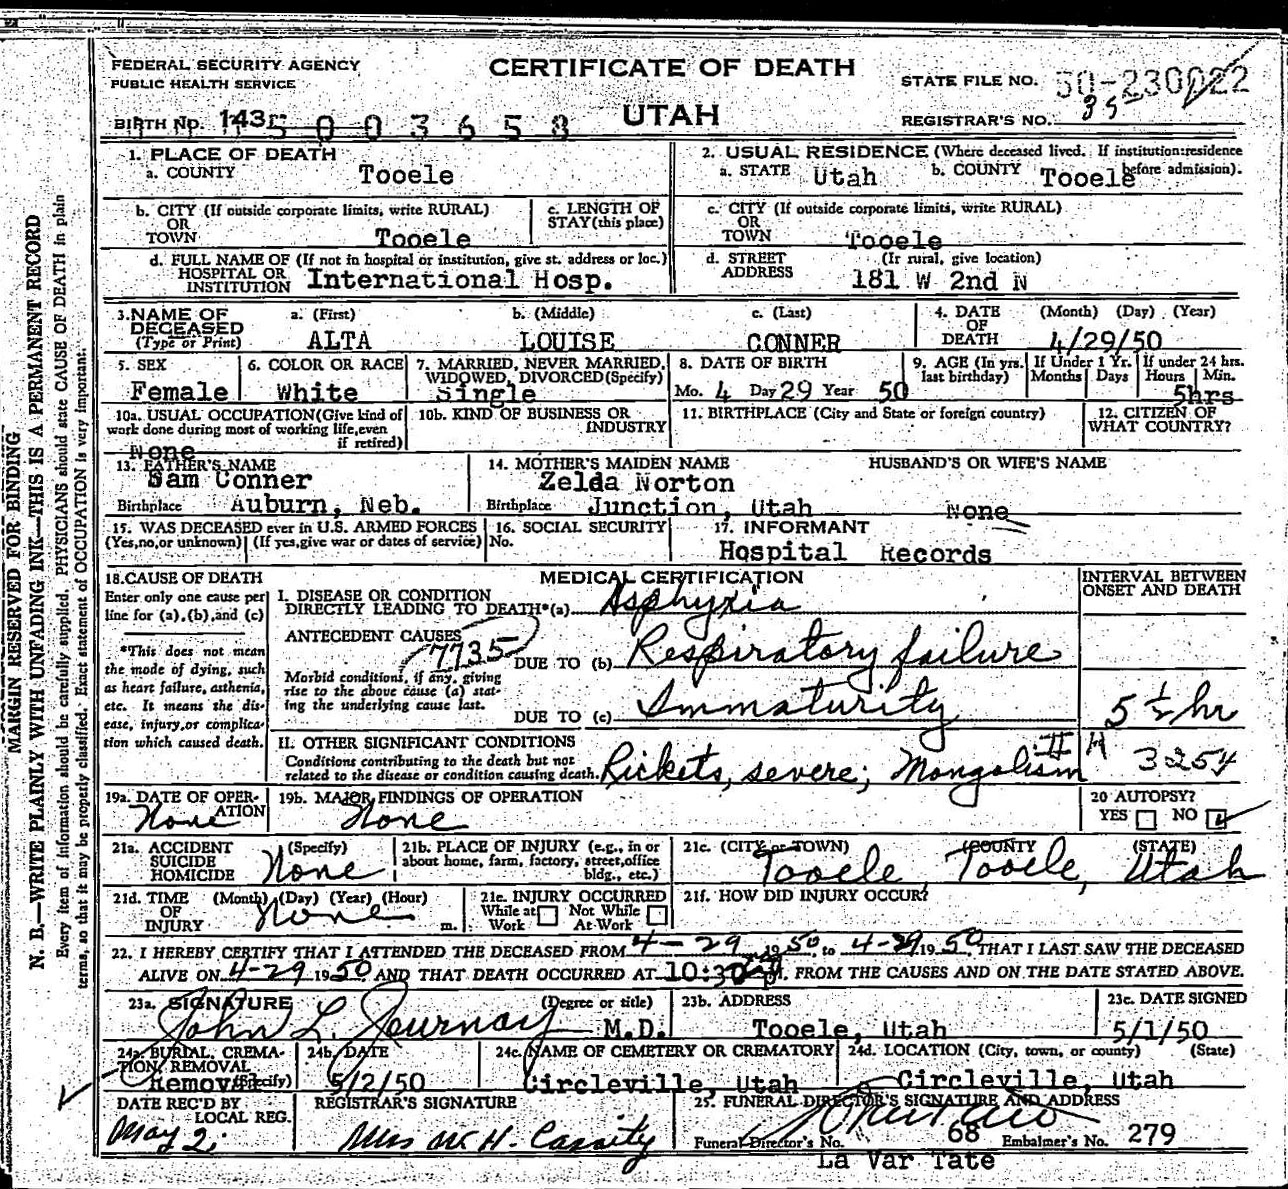 FEDERAL SECURITY AGENCY
PUBLIC HEALTH SERVICE
CERTIFICATE OF DEATH
UTAH
STATE FILE NO. 50-230022
REGISTRAR'S NO. 35
BIRTH NO. 143 5003658
MARGIN RESERVED FOR BINDING
N. B.—WRITE PLAINLY WITH UNFADING INK—THIS IS A PERMANENT RECORD
Every item of information should be carefully supplied. PHYSICIANS should state CAUSE OF DEATH in plain
terms, so that it may be properly classified. Exact statement of OCCUPATION is very important.
1. PLACE OF DEATH
a. COUNTY Tooele
2. USUAL RESIDENCE (Where deceased lived. If institution:residence before admission).
a. STATE Utah b. COUNTY Tooele
b. CITY (If outside corporate limits, write RURAL)
OR
TOWN Tooele
c. LENGTH OF
STAY (this place)
c. CITY (If outside corporate limits, write RURAL)
OR
TOWN Tooele
d. FULL NAME OF (If not in hospital or institution, give st. address or loc.)
HOSPITAL OR
INSTITUTION International Hosp.
d. STREET (If rural, give location)
ADDRESS 181 W 2nd N
3. NAME OF
DECEASED
(Type or Print)
a. (First) ALTA
b. (Middle) LOUISE
c. (Last) CONNER
4. DATE OF DEATH (Month) (Day) (Year)
4/29/50
5. SEX
Female
6. COLOR OR RACE
White
7. MARRIED, NEVER MARRIED,
WIDOWED, DIVORCED (Specify)
Single
8. DATE OF BIRTH
Mo. 4 Day 29 Year 50
9. AGE (In yrs. last birthday)
If Under 1 Yr. Months Days
If under 24 hrs. Hours Min.
5hrs
10a. USUAL OCCUPATION (Give kind of
work done during most of working life, even
if retired)
None
10b. KIND OF BUSINESS OR
INDUSTRY
11. BIRTHPLACE (City and State or foreign country)
12. CITIZEN OF
WHAT COUNTRY?
13. FATHER'S NAME
Sam Conner
Birthplace Auburn, Neb.
14. MOTHER'S MAIDEN NAME
Zelda Norton
Birthplace Junction, Utah
HUSBAND'S OR WIFE'S NAME
None
15. WAS DECEASED ever in U.S. ARMED FORCES
(Yes, no, or unknown) (If yes, give war or dates of service)
16. SOCIAL SECURITY
No.
17. INFORMANT
Hospital Records
18. CAUSE OF DEATH
Enter only one cause per
line for (a), (b), and (c)
*This does not mean
the mode of dying, such
as heart failure, asthenia,
etc. It means the dis-
ease, injury, or complica-
tion which caused death.
MEDICAL CERTIFICATION
INTERVAL BETWEEN
ONSET AND DEATH
I. DISEASE OR CONDITION
DIRECTLY LEADING TO DEATH*(a) Asphyxia
ANTECEDENT CAUSES
7735
DUE TO (b) Respiratory failure
Morbid conditions, if any, giving
rise to the above cause (a) stat-
ing the underlying cause last.
DUE TO (c) Immaturity 5 1/2 hr
II. OTHER SIGNIFICANT CONDITIONS
Conditions contributing to the death but not
related to the disease or condition causing death.
Rickets, severe; Mongolism II H 3254
19a. DATE OF OPERATION
None
19b. MAJOR FINDINGS OF OPERATION
None
20 AUTOPSY?
YES NO
21a. ACCIDENT (Specify)
SUICIDE
HOMICIDE None
21b. PLACE OF INJURY (e.g., in or
about home, farm, factory, street, office
bldg., etc.)
21c. (CITY or TOWN) (COUNTY) (STATE)
Tooele Tooele, Utah
21d. TIME (Month) (Day) (Year) (Hour)
OF
INJURY None m.
21e. INJURY OCCURRED
While at Work Not While At Work
21f. HOW DID INJURY OCCUR?
22. I HEREBY CERTIFY THAT I ATTENDED THE DECEASED FROM 4-29, 1950, to 4-29, 1950, THAT I LAST SAW THE DECEASED
ALIVE ON 4-29 1950 AND THAT DEATH OCCURRED AT 10:30 M. FROM THE CAUSES AND ON THE DATE STATED ABOVE.
23a. SIGNATURE (Degree or title)
John L. Gournay M.D.
23b. ADDRESS
Tooele, Utah
23c. DATE SIGNED
5/1/50
24a. BURIAL, CREMA-
TION, REMOVAL
Removal (Specify)
24b. DATE
5/2/50
24c. NAME OF CEMETERY OR CREMATORY
Circleville, Utah
24d. LOCATION (City, town, or county) (State)
Circleville, Utah
DATE REC'D BY
LOCAL REG.
May 2
REGISTRAR'S SIGNATURE
Mrs W. H. Cassity
25. FUNERAL DIRECTOR'S SIGNATURE AND ADDRESS
Funeral Director's No. 68 Embalmer's No. 279
La Var Tate